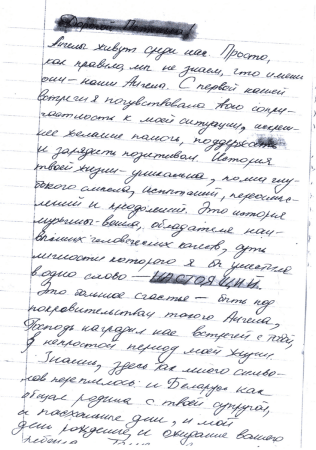 Дорогой
Ангелы живут среди нас. Просто,
как правило, мы не знаем, что именно
они - наши Ангелы. С первой нашей
встречи я почувствовала твою сопри-
частность к моей ситуации, искрен-
нее желание помочь, поддержать
и зарядить позитивом. История
твоей жизни - уникальна, полна глу-
бокого смысла, испытаний, переосмыс-
лений и преодолений. Это история
мужчины-воина, обладателя наи-
высших человеческих качеств, суть
личности которого я бы уместила
в одно слово - НАСТОЯЩИЙ.
Это большое счастье - быть под
покровительством такого Ангела,
Господь наградил нас встречей с тобой,
в непростой период моей жизни.
Знаешь, здесь так много символов
переплелось: и Беларусь как
общая родина с твоей супругой,
и пасхальные дни, и мой
день рождения, и ожидание вашего